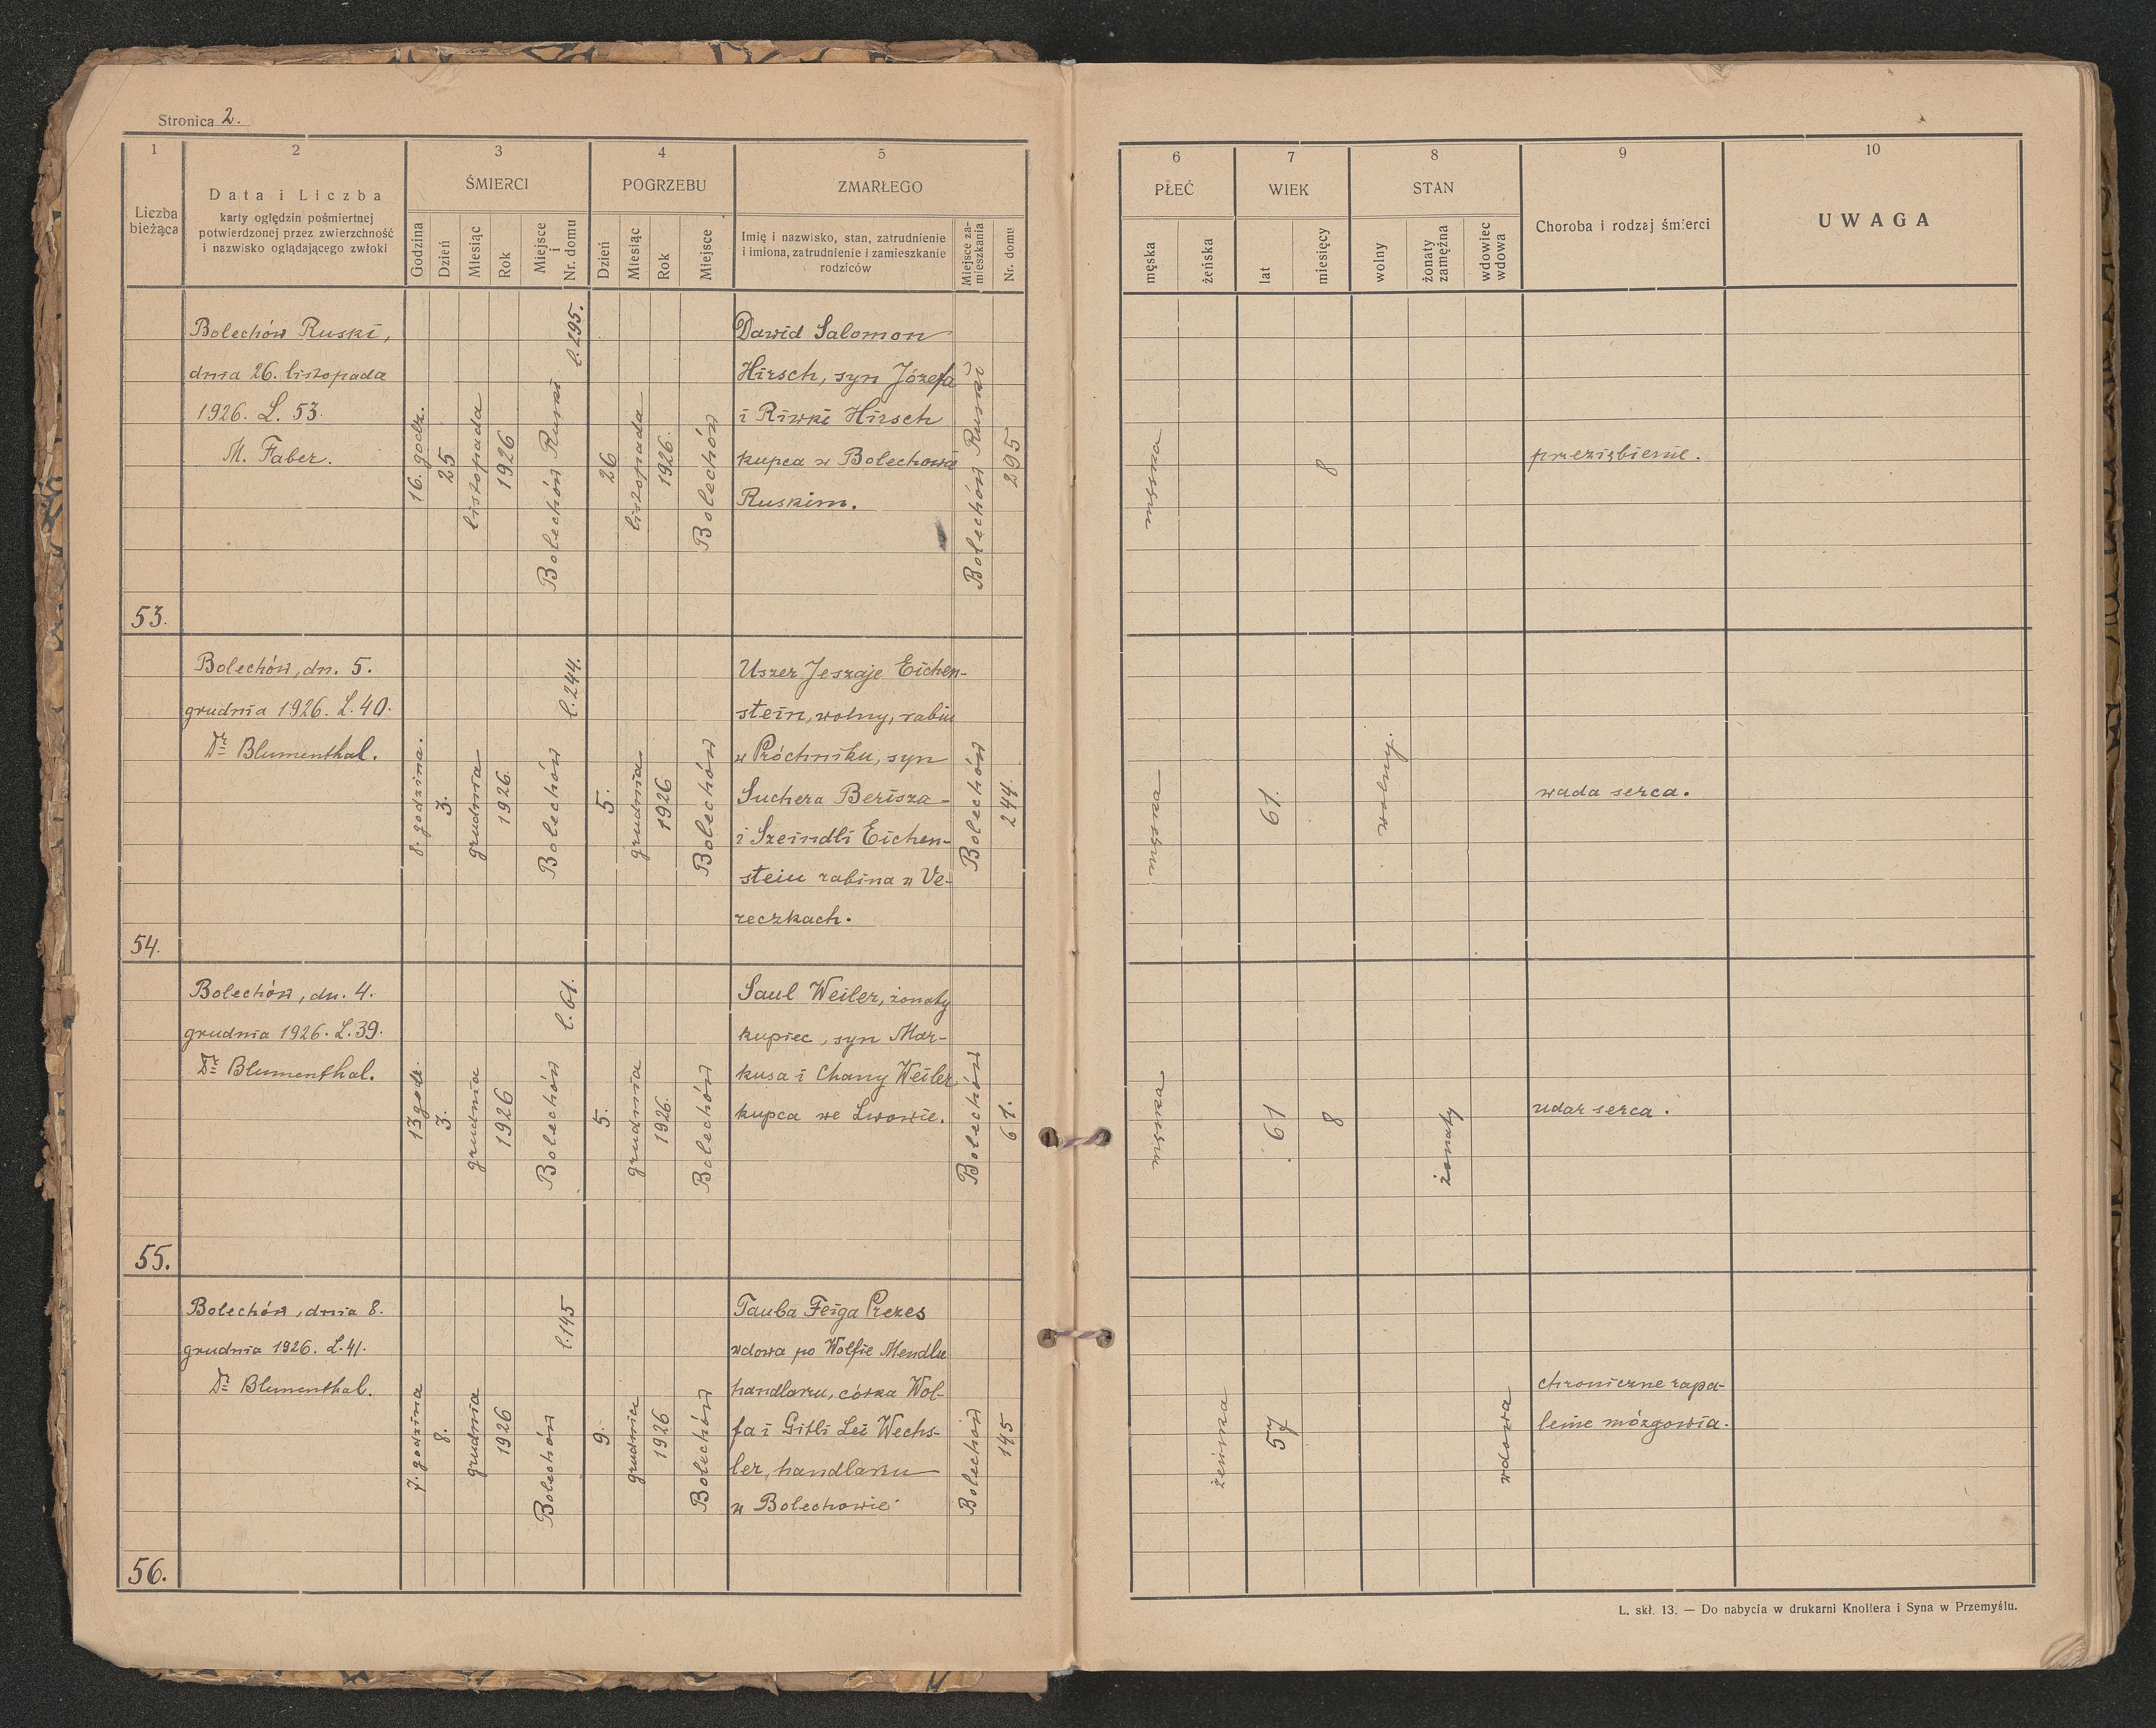 Stronica 2.
1 2 3 4 5
Liczba bieżąca
Data i Liczba
karty oględzin pośmiertnej
potwierdzonej przez zwierzchność
i nazwisko oglądającego zwłoki
ŚMIERCI
Godzina
Dzień
Miesiąc
Rok
Miejsce i Nr. domu
POGRZEBU
Dzień
Miesiąc
Rok
Miejsce
ZMARŁEGO
Imię i nazwisko, stan, zatrudnienie
i imiona, zatrudnienie i zamieszkanie
rodziców
Miejsce za-
mieszkania
Nr. domu
6 7 8 9 10
PŁEĆ
męska
żeńska
WIEK
lat
miesięcy
STAN
wolny
żonaty
zamężna
wdowiec
wdowa
Choroba i rodzaj śmierci
UWAGA
53.
Bolechów Ruski,
dnia 26. listopada
1926. L. 53.
M. Faber.
16. godz.
25
listopada
1926
Bolechów Ruski l. 295.
26
listopada
1926.
Bolechów
Dawid Salomon
Hirsch, syn Józefa
i Riwki Hirsch
kupca w Bolechowie
Ruskim.
Bolechów Ruski
295
męska
8
przeziębienie.
54.
Bolechów, dn. 5.
grudnia 1926. L. 40.
Dr Blumenthal.
8. godzina.
3.
grudnia
1926.
Bolechów l. 244.
5.
grudnia
1926
Bolechów
Uszer Jeszaje Eichen-
stein, wolny, rabin
w Próchniku, syn
Suchera Berisza
i Szeindli Eichen-
stein rabina w Ve-
reczkach.
Bolechów
244.
męska
61.
wolny.
wada serca.
55.
Bolechów, dn. 4.
grudnia 1926. L. 39.
Dr Blumenthal.
13 godz.
3.
grudnia
1926
Bolechów l. 61.
5.
grudnia
1926.
Bolechów
Saul Weiler, żonaty
kupiec, syn Mar-
kusa i Chany Weiler
kupca we Lwowie.
Bolechów
61.
męska
61
8
żonaty
udar serca.
56.
Bolechów, dnia 8.
grudnia 1926. L. 41.
Dr Blumenthal.
7. godzina
8.
grudnia
1926
Bolechów l. 145
9.
grudnia
1926
Bolechów
Tauba Feiga Prezes
wdowa po Wolfie Mendlu
handlarzu, córka Wol-
fa i Gitli Lei Wechs-
ler, handlarzu
w Bolechowie
Bolechów
145
żeńska
57
wdowa
chroniczne zapa-
lenie mózgowia.
L. skł. 13. — Do nabycia w drukarni Knollera i Syna w Przemyślu.